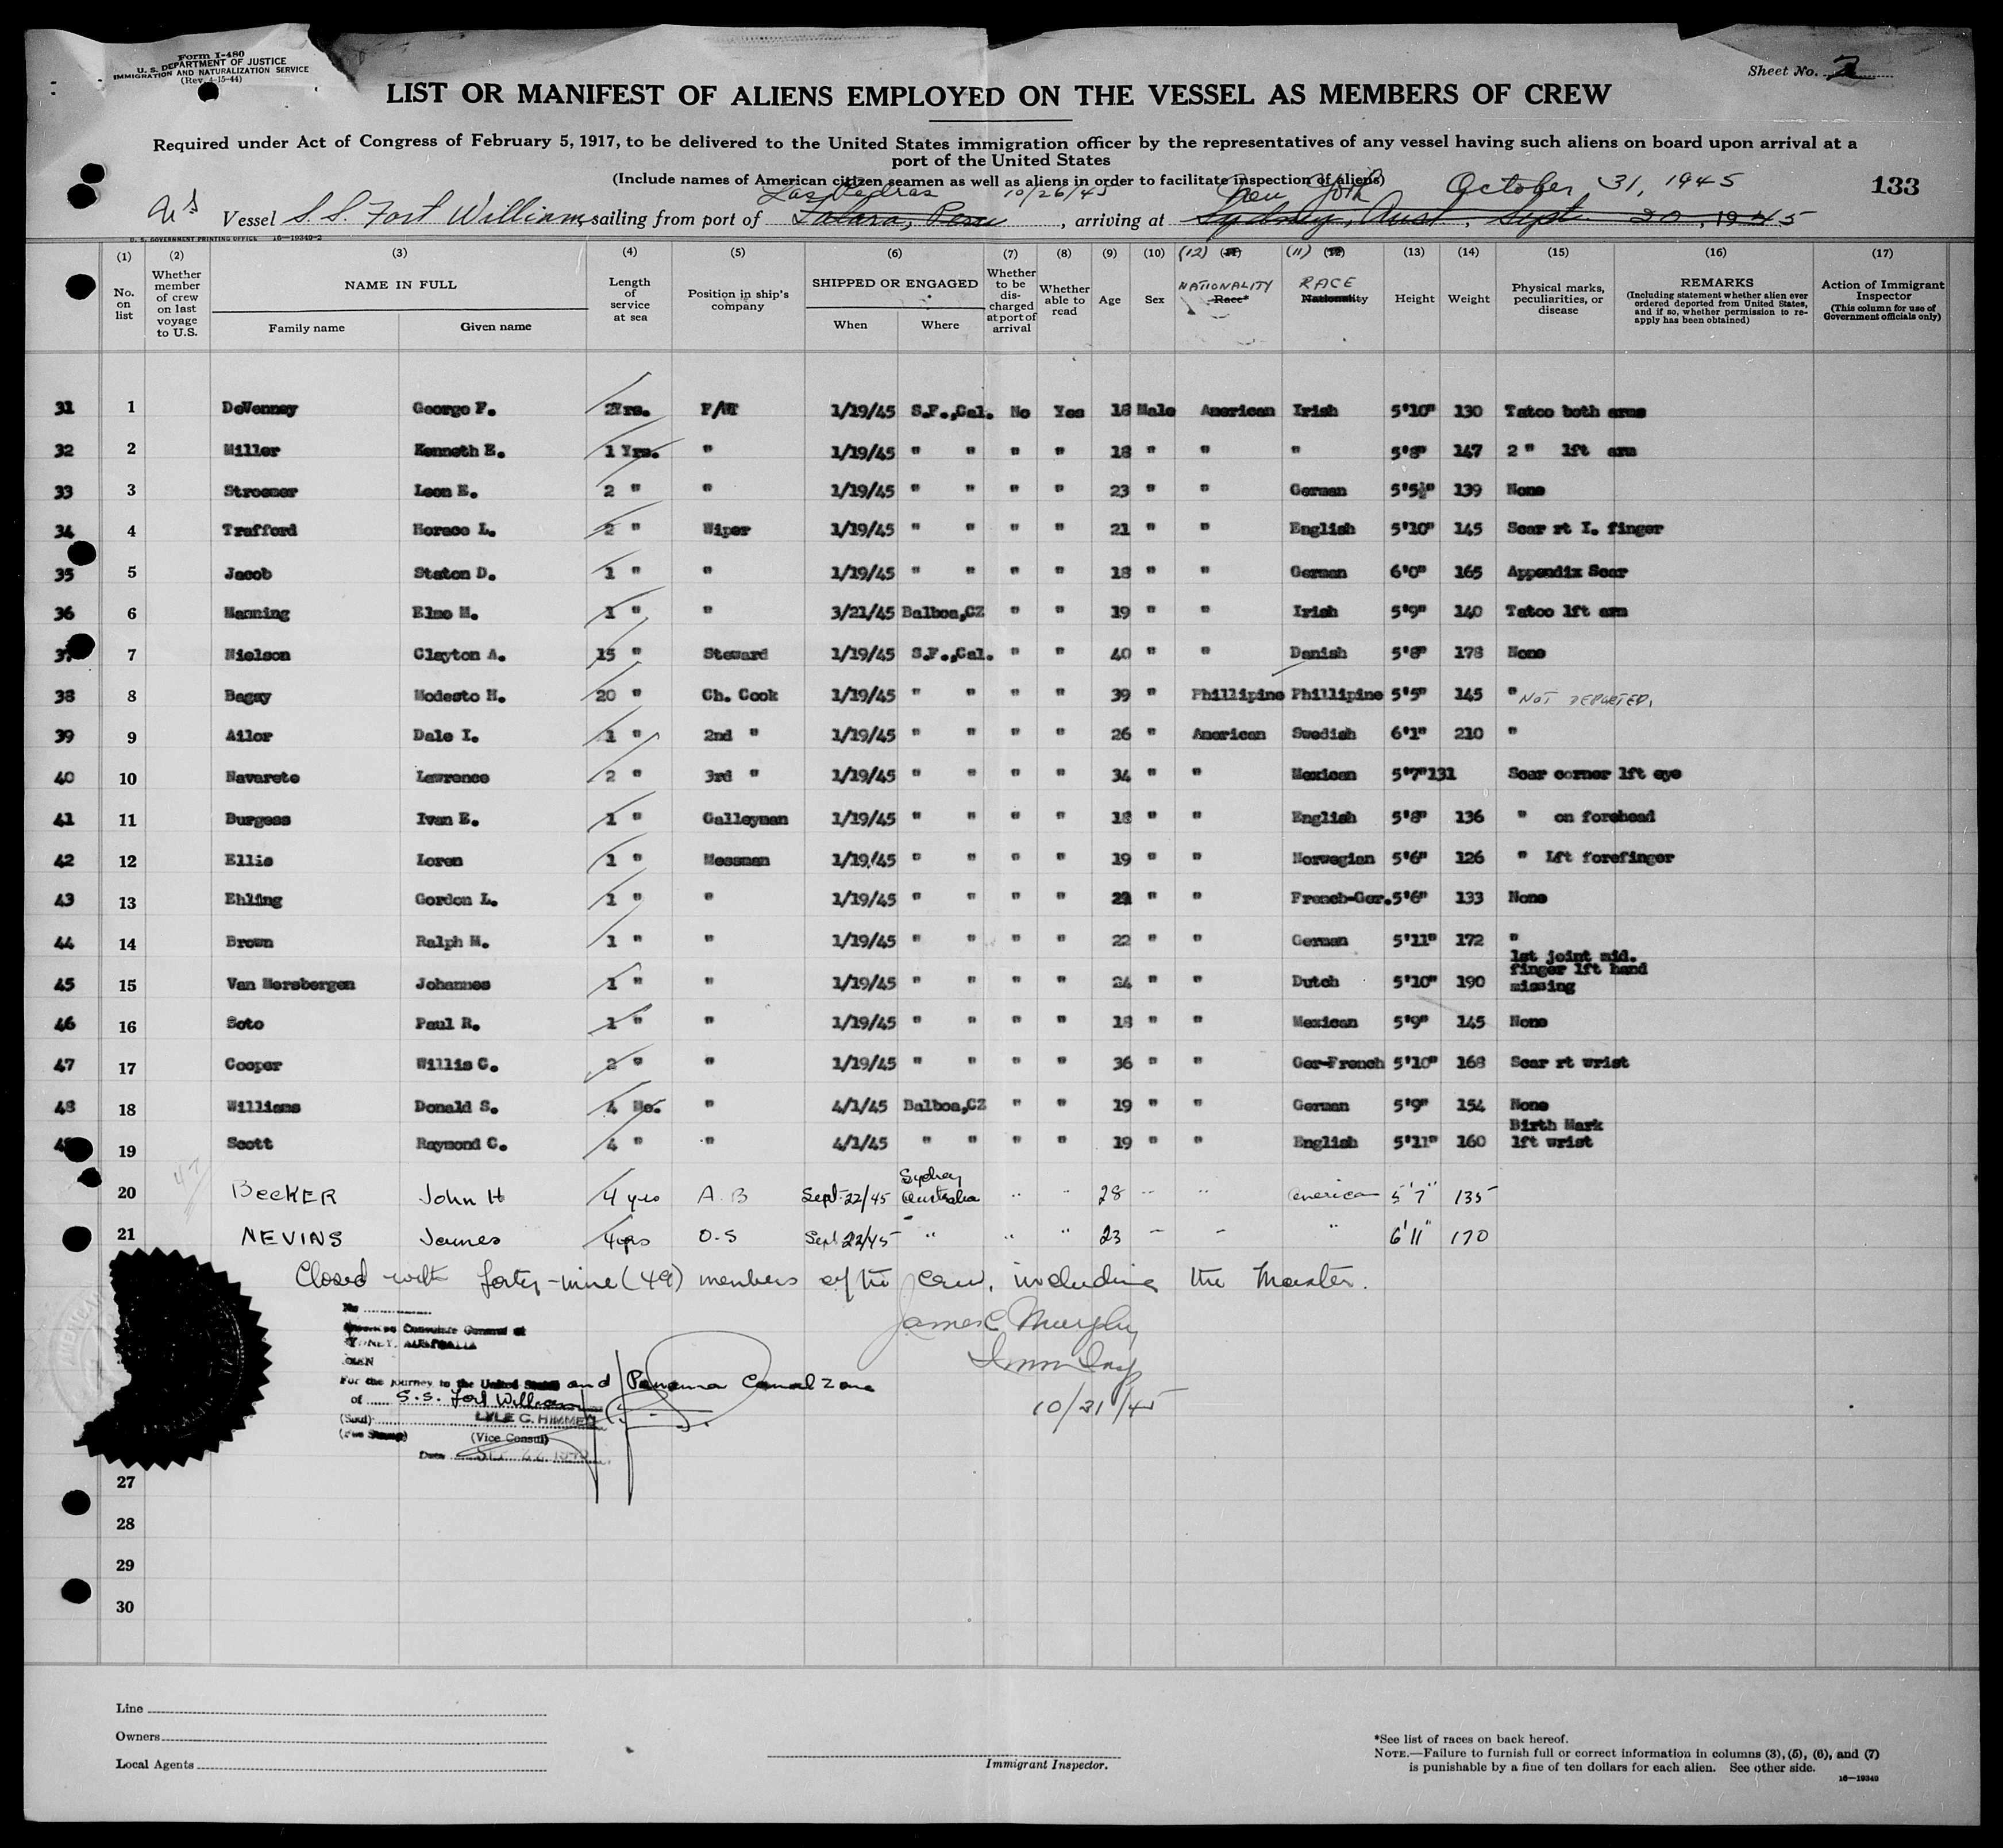 Form I-480
U. S. DEPARTMENT OF JUSTICE
IMMIGRATION AND NATURALIZATION SERVICE
(Rev. 4-15-44)
Sheet No. 2
LIST OR MANIFEST OF ALIENS EMPLOYED ON THE VESSEL AS MEMBERS OF CREW
Required under Act of Congress of February 5, 1917, to be delivered to the United States immigration officer by the representatives of any vessel having such aliens on board upon arrival at a
port of the United States
(Include names of American citizen seamen as well as aliens in order to facilitate inspection of aliens)
Las Piedras 10/26/45 New York October 31, 1945 133
Vessel S.S. Fort William, sailing from port of Talara, Peru, arriving at Sydney, Aust, Sept. 20, 1945
U. S. GOVERNMENT PRINTING OFFICE 16—19349-2
(1) (2) (3) (4) (5) (6) (7) (8) (9) (10) (12) (11) (11) (12) (13) (14) (15) (16) (17)
No. on list
Whether member of crew on last voyage to U.S.
NAME IN FULL
Family name
Given name
Length of service at sea
Position in ship's company
SHIPPED OR ENGAGED
When
Where
Whether to be discharged at port of arrival
Whether able to read
Age
Sex
NATIONALITY
Race*
RACE
Nationality
Height
Weight
Physical marks, peculiarities, or disease
REMARKS
(Including statement whether alien ever ordered deported from United States, and if so, whether permission to reapply has been obtained)
Action of Immigrant Inspector
(This column for use of Government officials only)
31 1 DeVenney George F. 2Yrs. F/WT 1/19/45 S.F.,Cal. No Yes 18 Male American Irish 5'10" 130 Tatoo both arms
32 2 Miller Kenneth E. 1 Yrs. " 1/19/45 " " " " 18 " " " 5'8" 147 2 " lft arm
33 3 Stroemer Leon E. 2 " " 1/19/45 " " " " 23 " " German 5'5½" 139 None
34 4 Trafford Horace L. 2 " Wiper 1/19/45 " " " " 21 " " English 5'10" 145 Scar rt I. finger
35 5 Jacob Staton D. 1 " " 1/19/45 " " " " 18 " " German 6'0" 165 Appendix Scar
36 6 Manning Elmo M. 1 " " 3/21/45 Balboa,CZ " " 19 " " Irish 5'9" 140 Tatoo lft arm
37 7 Nielson Clayton A. 15 " Steward 1/19/45 S.F.,Cal. " " 40 " " Danish 5'8" 178 None
38 8 Bagay Modesto H. 20 " Ch. Cook 1/19/45 " " " " 39 " Phillipine Phillipine 5'5" 145 " NOT DEPORTED.
39 9 Ailor Dale I. 1 " 2nd " 1/19/45 " " " " 26 " American Swedish 6'1" 210 "
40 10 Navarete Lawrence 2 " 3rd " 1/19/45 " " " " 34 " " Mexican 5'7"131 Scar corner lft eye
41 11 Burgess Ivan E. 1 " Galleyman 1/19/45 " " " " 18 " " English 5'8" 136 " on forehead
42 12 Ellis Loren 1 " Messman 1/19/45 " " " " 19 " " Norwegian 5'6" 126 " Lft forefinger
43 13 Ehling Gordon L. 1 " " 1/19/45 " " " " 22 " " French-Ger. 5'6" 133 None
44 14 Brown Ralph M. 1 " " 1/19/45 " " " " 22 " " German 5'11" 172 "
45 15 Van Morsbergen Johannes 1 " " 1/19/45 " " " " 24 " " Dutch 5'10" 190 1st joint mid. finger lft hand missing
46 16 Soto Paul R. 1 " " 1/19/45 " " " " 18 " " Mexican 5'9" 145 None
47 17 Cooper Willis C. 2 " " 1/19/45 " " " " 36 " " Ger-French 5'10" 168 Scar rt wrist
48 18 Williams Donald S. 4 Mo. " 4/1/45 Balboa,CZ " " 19 " " German 5'9" 154 None
49 19 Scott Raymond C. 4 " " 4/1/45 " " " " 19 " " English 5'11" 160 Birth Mark lft wrist
20 BECKER John H 4 yrs A.B Sept 22/45 Sydney Australia " " 28 " " American 5'7" 135
21 NEVINS James 4yrs O.S Sept 22/45 " " " 23 " " " 6'11" 170
Closed with forty-nine (49) members of the crew, including the Master.
James C Murphy
Imm Insp
10/31/45
No
American Consulate General at
SYDNEY, AUSTRALIA
SEEN
For the journey to the United States and Panama Canal Zone
of S.S. Fort William
(Seal) LYLE C. HIMMEL
(Vice Consul)
Date SEP 22 1945
27
28
29
30
Line
Owners
Local Agents
Immigrant Inspector.
*See list of races on back hereof.
NOTE.—Failure to furnish full or correct information in columns (3), (5), (6), and (7)
is punishable by a fine of ten dollars for each alien. See other side.
16—19349